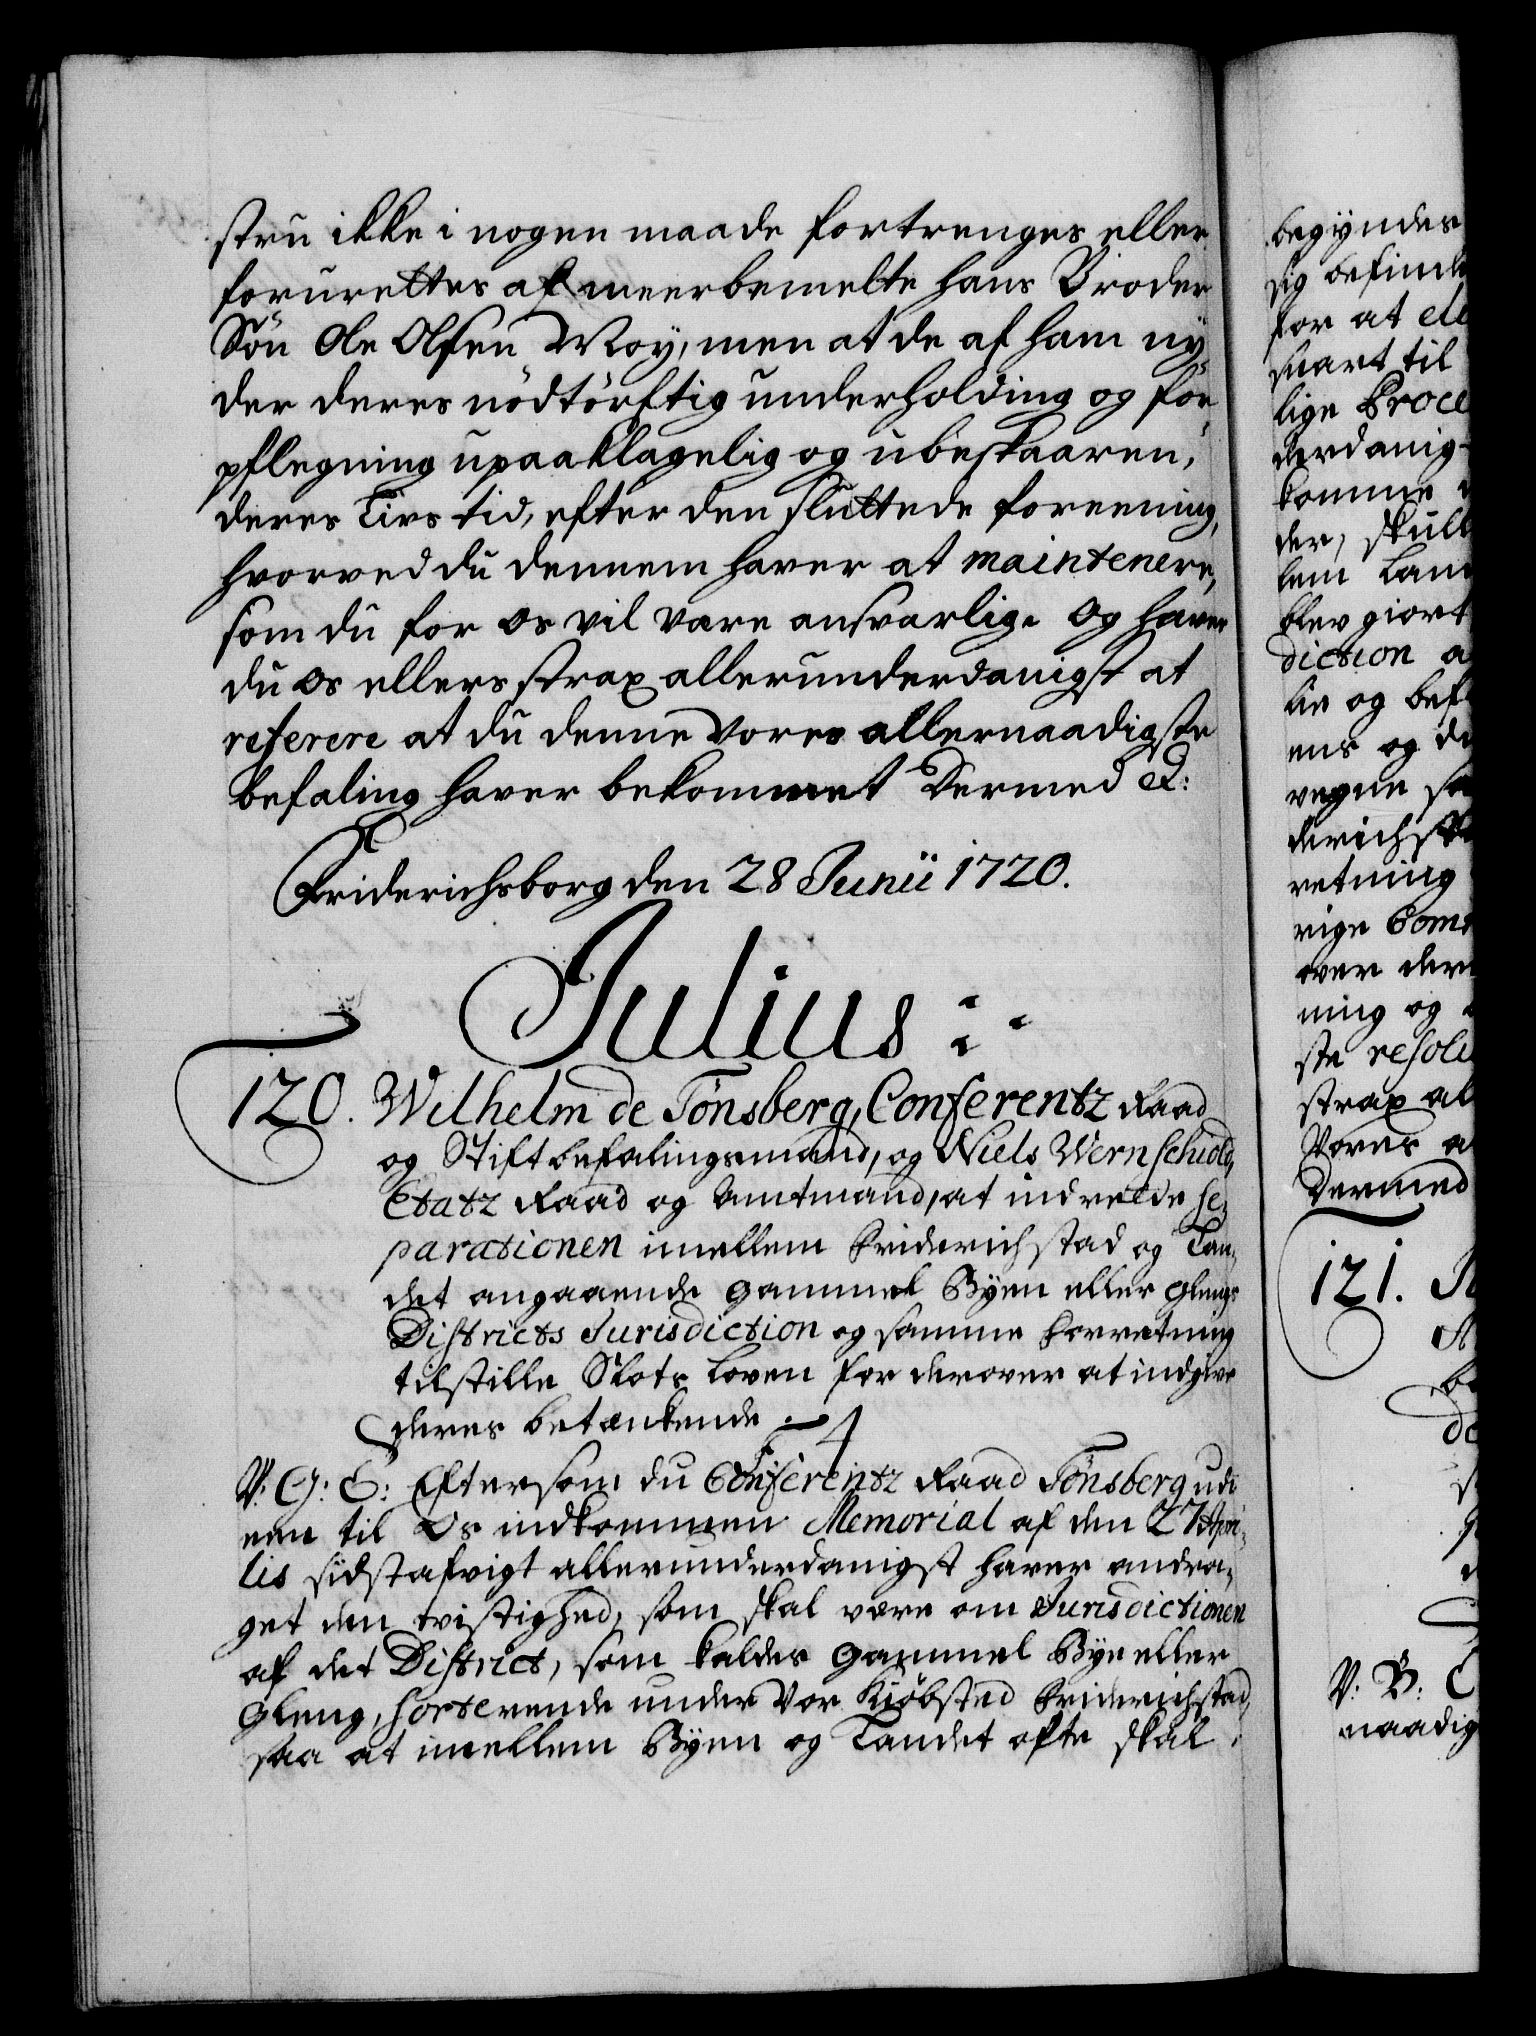 stru ikke i nogen maade fortrenges eller
forurettes af meerbemelte hans Broder
Sön Ole Olsen Moy, men at de af ham ny-
der deres nödtörftig underholding og for-
pflegning upaaklagelig og ubeskaaren,
deres Livs tid, efter den sluttede foreening,
hvorved du dennem haver at maintenere,
som du for os vil være ansvarlig. Og haver
du os ellers strax allerunderdanigst at
referere at du denne Vores allernaadigste
befaling haver bekommet Dermed &:
Friderichsborg den 28 Junii 1720.
Julius :
120. Wilhelm de Tønsberg, Conferentz Raad
og Stiftbefalingsmand, og Niels Wernschiold,
Etatz Raad og Amtmand, at indrette se-
parationen imellem Friderichstad og Lan-
det angaaende Gammel Byen eller Glengs
Districts Jurisdiction og samme forretning
tilstille Slots Loven for derover at indgive
deres betænkende
V: G: T: Eftersom du Conferentz Raad Tønsberg udi
een til Os indkommen Memorial af den 27 Apri-
lis sidstafvigt allerunderdanigst haver andra-
get den tvistighed, som skal være om Jurisdictionen
af det District, som kaldes Gammel Bye eller
Gleng, sorterende under Vor Kiöbsted Friderichstad,
saa at imellem Byen og Landet ofte skal
begyndes
sig befind
for at
svart til
lige Proce
derdanig-
komme
der, skull
lem Lan
blev giort
diction a
lie og bef
ens og de
vegne sa
derichst
retning
rige Com
over der
ning og
ste resolu
strax al
Vores a
Dermed
121.
V: G:
naadig